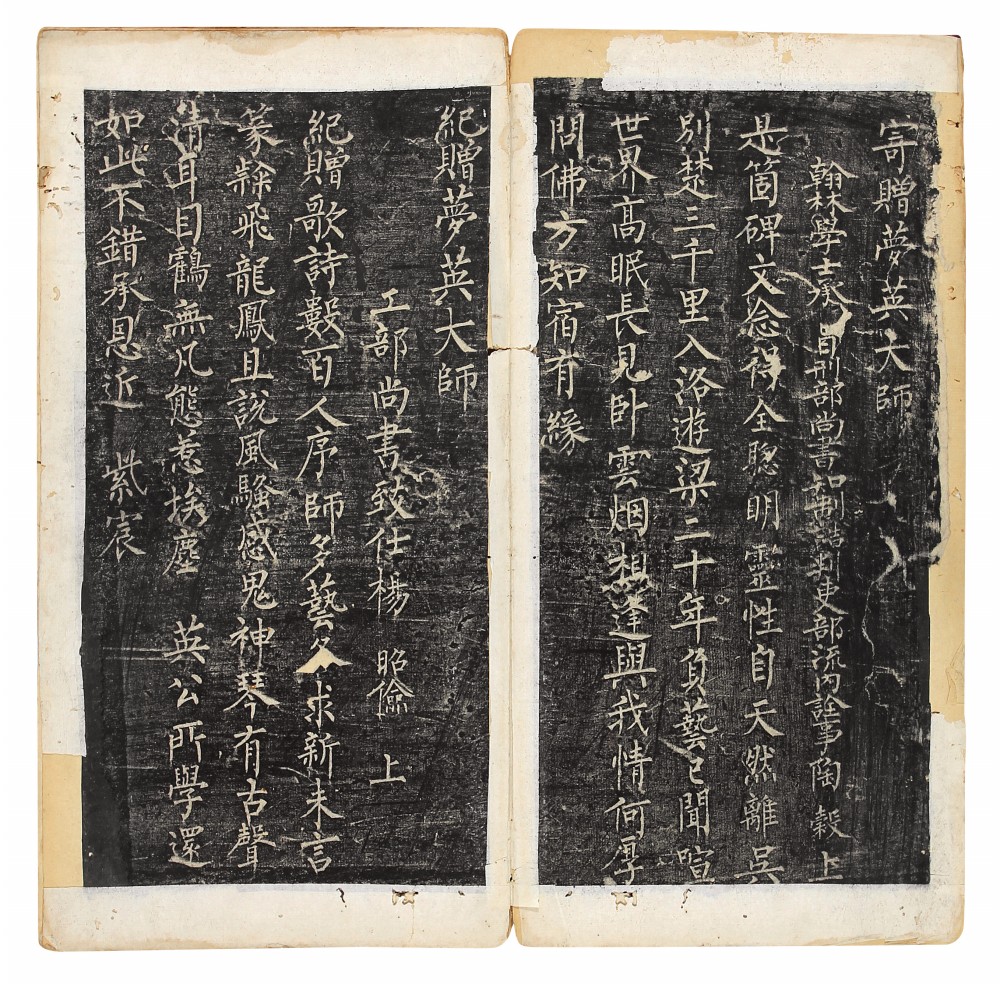 寄贈夢英大師
翰林學士承旨刑部尚書知制誥判吏部流內詮事陶穀上
是箇碑文念得全聰明靈性自天然離吳
別楚三千里入洛遊梁二十年負藝已聞喧
世界高眠長見卧雲烟相逢與我情何厚
問佛方知宿有緣
紀贈夢英大師
工部尚書致仕楊昭儉上
紀贈歌詩數百人序師多藝各求新未言
篆隸飛龍鳳且說風騷感鬼神琴有古聲
清耳目鶴無凡態惹埃塵 英公所學還
如此不錯承恩近 紫宸